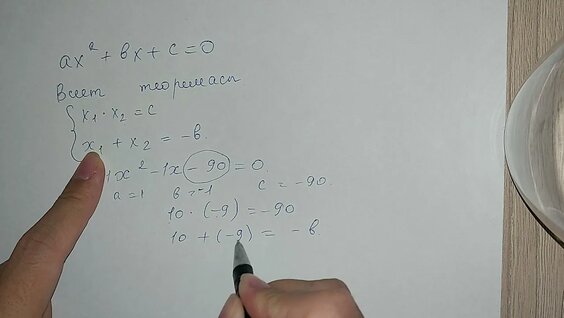 ax² + bx + c = 0
Виет теоремасы
x₁ · x₂ = c
x₁ + x₂ = -b.
1x² - 1x - 90 = 0.
a = 1 b = -1 c = -90.
10 · (-9) = -90
10 + (-9) = -b